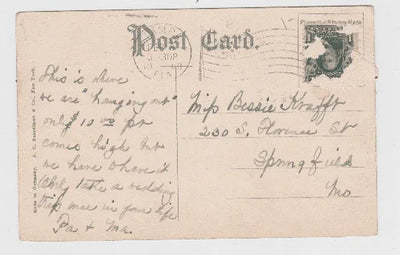 Post Card.
This is where
we are "hanging out"
only 10 00 per
comes high but
we have to have it
Only take a wedding
trip once in your life
Pa & Ma.
Miss Bessie Krafft
230 S. Florence St
Springfield
Mo
Made in Germany. A. C. Bosselman & Co., New York.